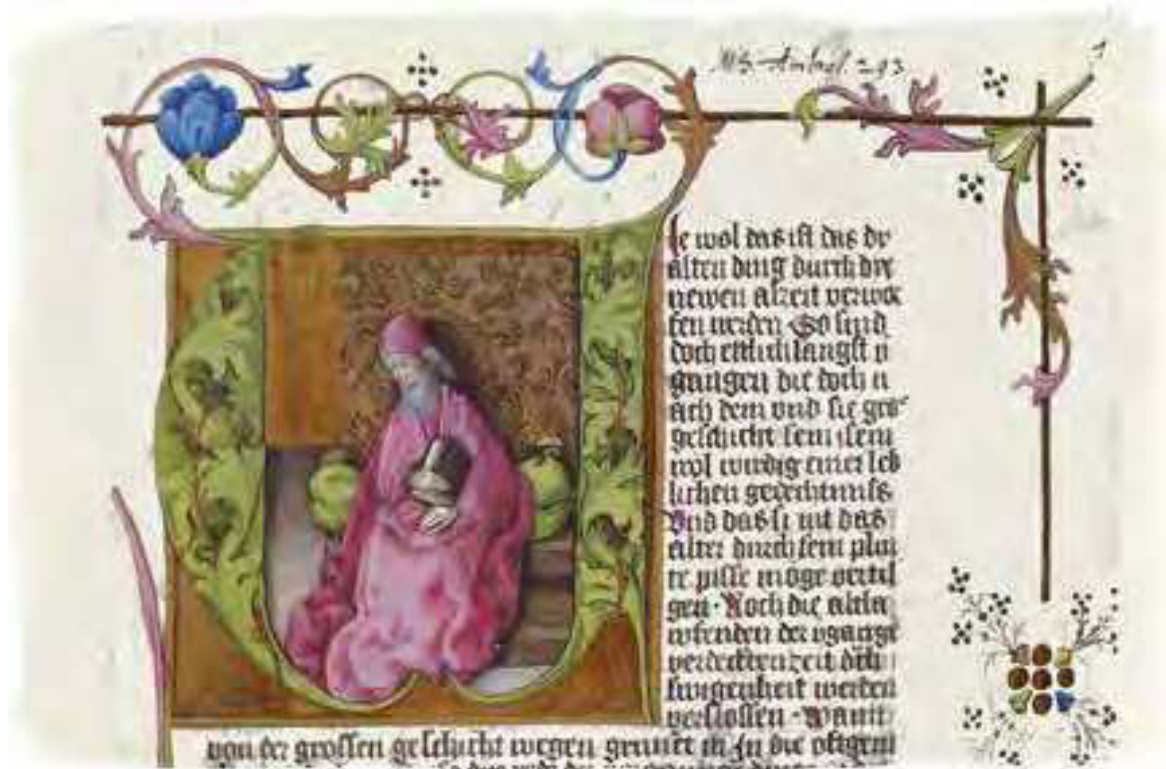 Ms Ambras. 293
1
Ie wol das ist das die
alten ding durch die
newen alzeit verwor
fen werden So sind
doch ettlich langst v
gangen die doch n
ach dem und sie gros
geschicht sein sein
wol wirdig einer leb
lichen gedechtnuss
Und das si nit das
alter durch sein plin
te pisse moge vertil
gen · Noch die abla
ufenden der vgange
verdeckten zeit
swigenheit werden
verslossen · Wann
von der grossen geschicht wegen in die